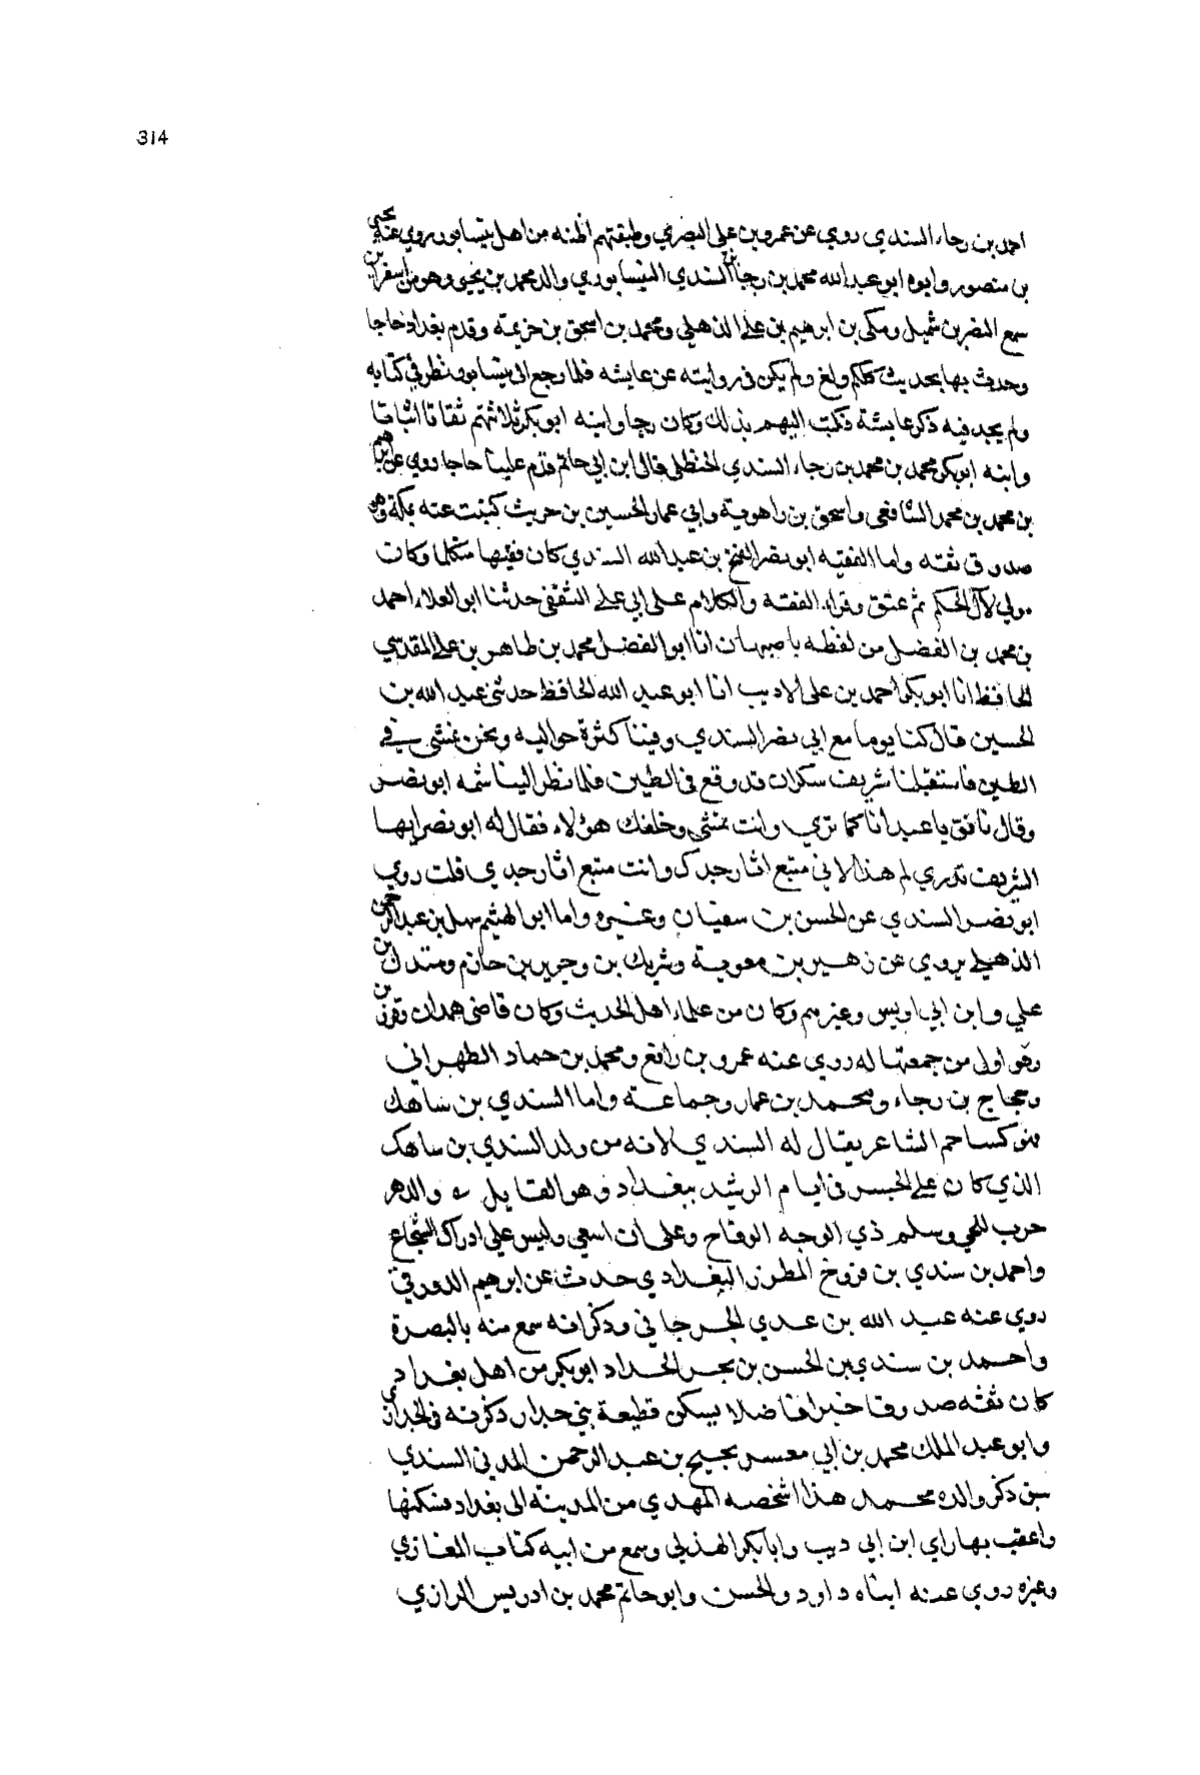 314
احمد بن رجاء السندي روي عن عمرو بن علي البصري وطبقتهم اظنه من اهل نيسابور روي عنه يحيى
بن منصور وابوه ابو عبد الله محمد بن رجا بن السندي النيسابوري والد محمد بن يحيى وهو من اسفراين
سمع النضر بن شميل ومكي بن ابرهيم بن علي الذهلي ومحمد بن اسحق بن خزيمة وقدم بغداد حاجا
وحدث بها بحديث كلكم ولغ ولم يكن في روايته عن عايشه فلما رجع الى نيسابور نظر في كتابه
ولم يجد فيه ذكر عايشة فكتب اليهم بذلك وكان رجا وابنه ابو بكر ثلاثتهم ثقاتا اثباتا
وابنه ابو بكر محمد بن محمد بن رجاء السندي الحنظلي قال ابن ابي حاتم قدم علينا حاجا روي عن ابرهيم
بن محمد بن محمد الشافعي واسحق بن راهوية وابي عمار الحسين بن حريث كتبت عنه بمكة وهو
صدوق ثقته واما الفقيه ابو نصر الفتح بن عبد الله السندي كان فقيها متكلما وكان
مولي لآل الحكم ثم عتق وقراء الفقه والكلام على ابي علي الثقفي حدثنا ابو العلاء احمد
بن محمد بن الفضل من لفظه باصبهان انا ابو الفضل محمد بن طاهر بن علي المقدسي
الحافظ انا ابو بكر احمد بن علي الاديب انا ابو عبد الله الحافظ حدثني عبد الله بن
الحسين قال كنا يوما مع ابي نصر السندي وفينا كثرة حواليه ونحن نمشي في
الطين فاستقبلنا شريف سكران قد وقع في الطين فلما نظر الينا شمه ابو نصر
وقال نافق يا عبد انا كما تري وانت تمشي وخلفك هؤلاء فقال له ابو نصر ايها
الشريف تدري لم هذا لاني متبع اثار جدك وانت متبع اثار جدي قلت روي
ابو نصر السندي عن الحسن بن سفيان وغيره واما ابو الهثيم سهل بن عبد الرحمن
الذهلي يروي عن زهير بن معوية وشريك بن وجرير بن حازم ومندل بن
علي وابن ابي اويس وغيرهم وكان من علماء اهل الحديث وكان قاضي همدان وقزوين
وهو اول من جمعتا له روي عنه عمرو بن رافع ومحمد بن حماد الطهراني
وحجاج بن رجاء ومحمد بن عمار وجماعة واما السندي بن شاهك
فهو كساحم الشاعر يقال له السندي لانه من ولد السندي بن ساهك
الذي كان علي الحبس في ايام الرشيد ببغداد وهو القايل والدهر
حرب للحي وسلم ذي الوجه الوقاح وعلى ان اسعي وليس علي ادراك الشجاع
واحمد بن سندي بن فروخ المطرز البغدادي حدث عن ابرهيم الدورقي
روي عنه عبد الله بن عدي الجرجاني وذكر انه سمع منه بالبصرة
واحمد بن سندي بن الحسن بن بحر الحداد ابو بكر من اهل بغداد
كان ثقثه صدوقا خيرا فاضلا يسكن قطيعة بني جدار ذكرته في الجداري
وابو عبد الملك محمد بن ابي معسر نجيح بن عبد الرحمن المدني السندي
سبق ذكر والده محمد هذا اشخصه المهدي من المدينة الى بغداد فسكنها
واعقب بها راي ابن ابي ديب وابا بكر الهذلي وسمع من ابيه كتاب المغازي
وغيره روي عنه ابناه داود والحسن وابو حاتم محمد بن ادريس الرازي